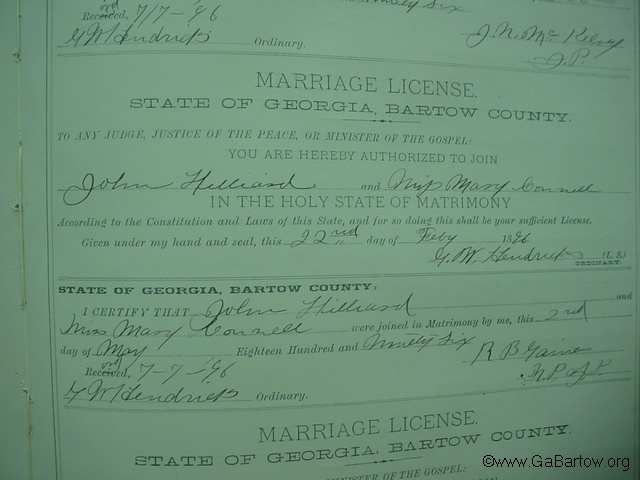 Ninety Six
Rec'd Received, 7/7-96
G W Hendricks Ordinary. J. N. Mc Kelvy
J.P.
MARRIAGE LICENSE.
STATE OF GEORGIA, BARTOW COUNTY.
TO ANY JUDGE, JUSTICE OF THE PEACE, OR MINISTER OF THE GOSPEL:
YOU ARE HEREBY AUTHORIZED TO JOIN
John Hilliard and Miss Mary Connell
IN THE HOLY STATE OF MATRIMONY
According to the Constitution and Laws of this State, and for so doing this shall be your sufficient License.
Given under my hand and seal, this 22nd day of Feby 1896
G. W. Hendricks (L. S.)
ORDINARY.
STATE OF GEORGIA, BARTOW COUNTY:
I CERTIFY THAT John Hilliard and
Miss Mary Connell were joined in Matrimony by me, this 2nd
day of May Eighteen Hundred and Ninety Six
R B Gaines
Rec'd Received, 7-7-96 N.P & J.P
G W Hendricks Ordinary.
MARRIAGE LICENSE.
STATE OF GEORGIA, BARTOW COUNTY.
MINISTER OF THE GOSPEL:
©www.GaBartow.org